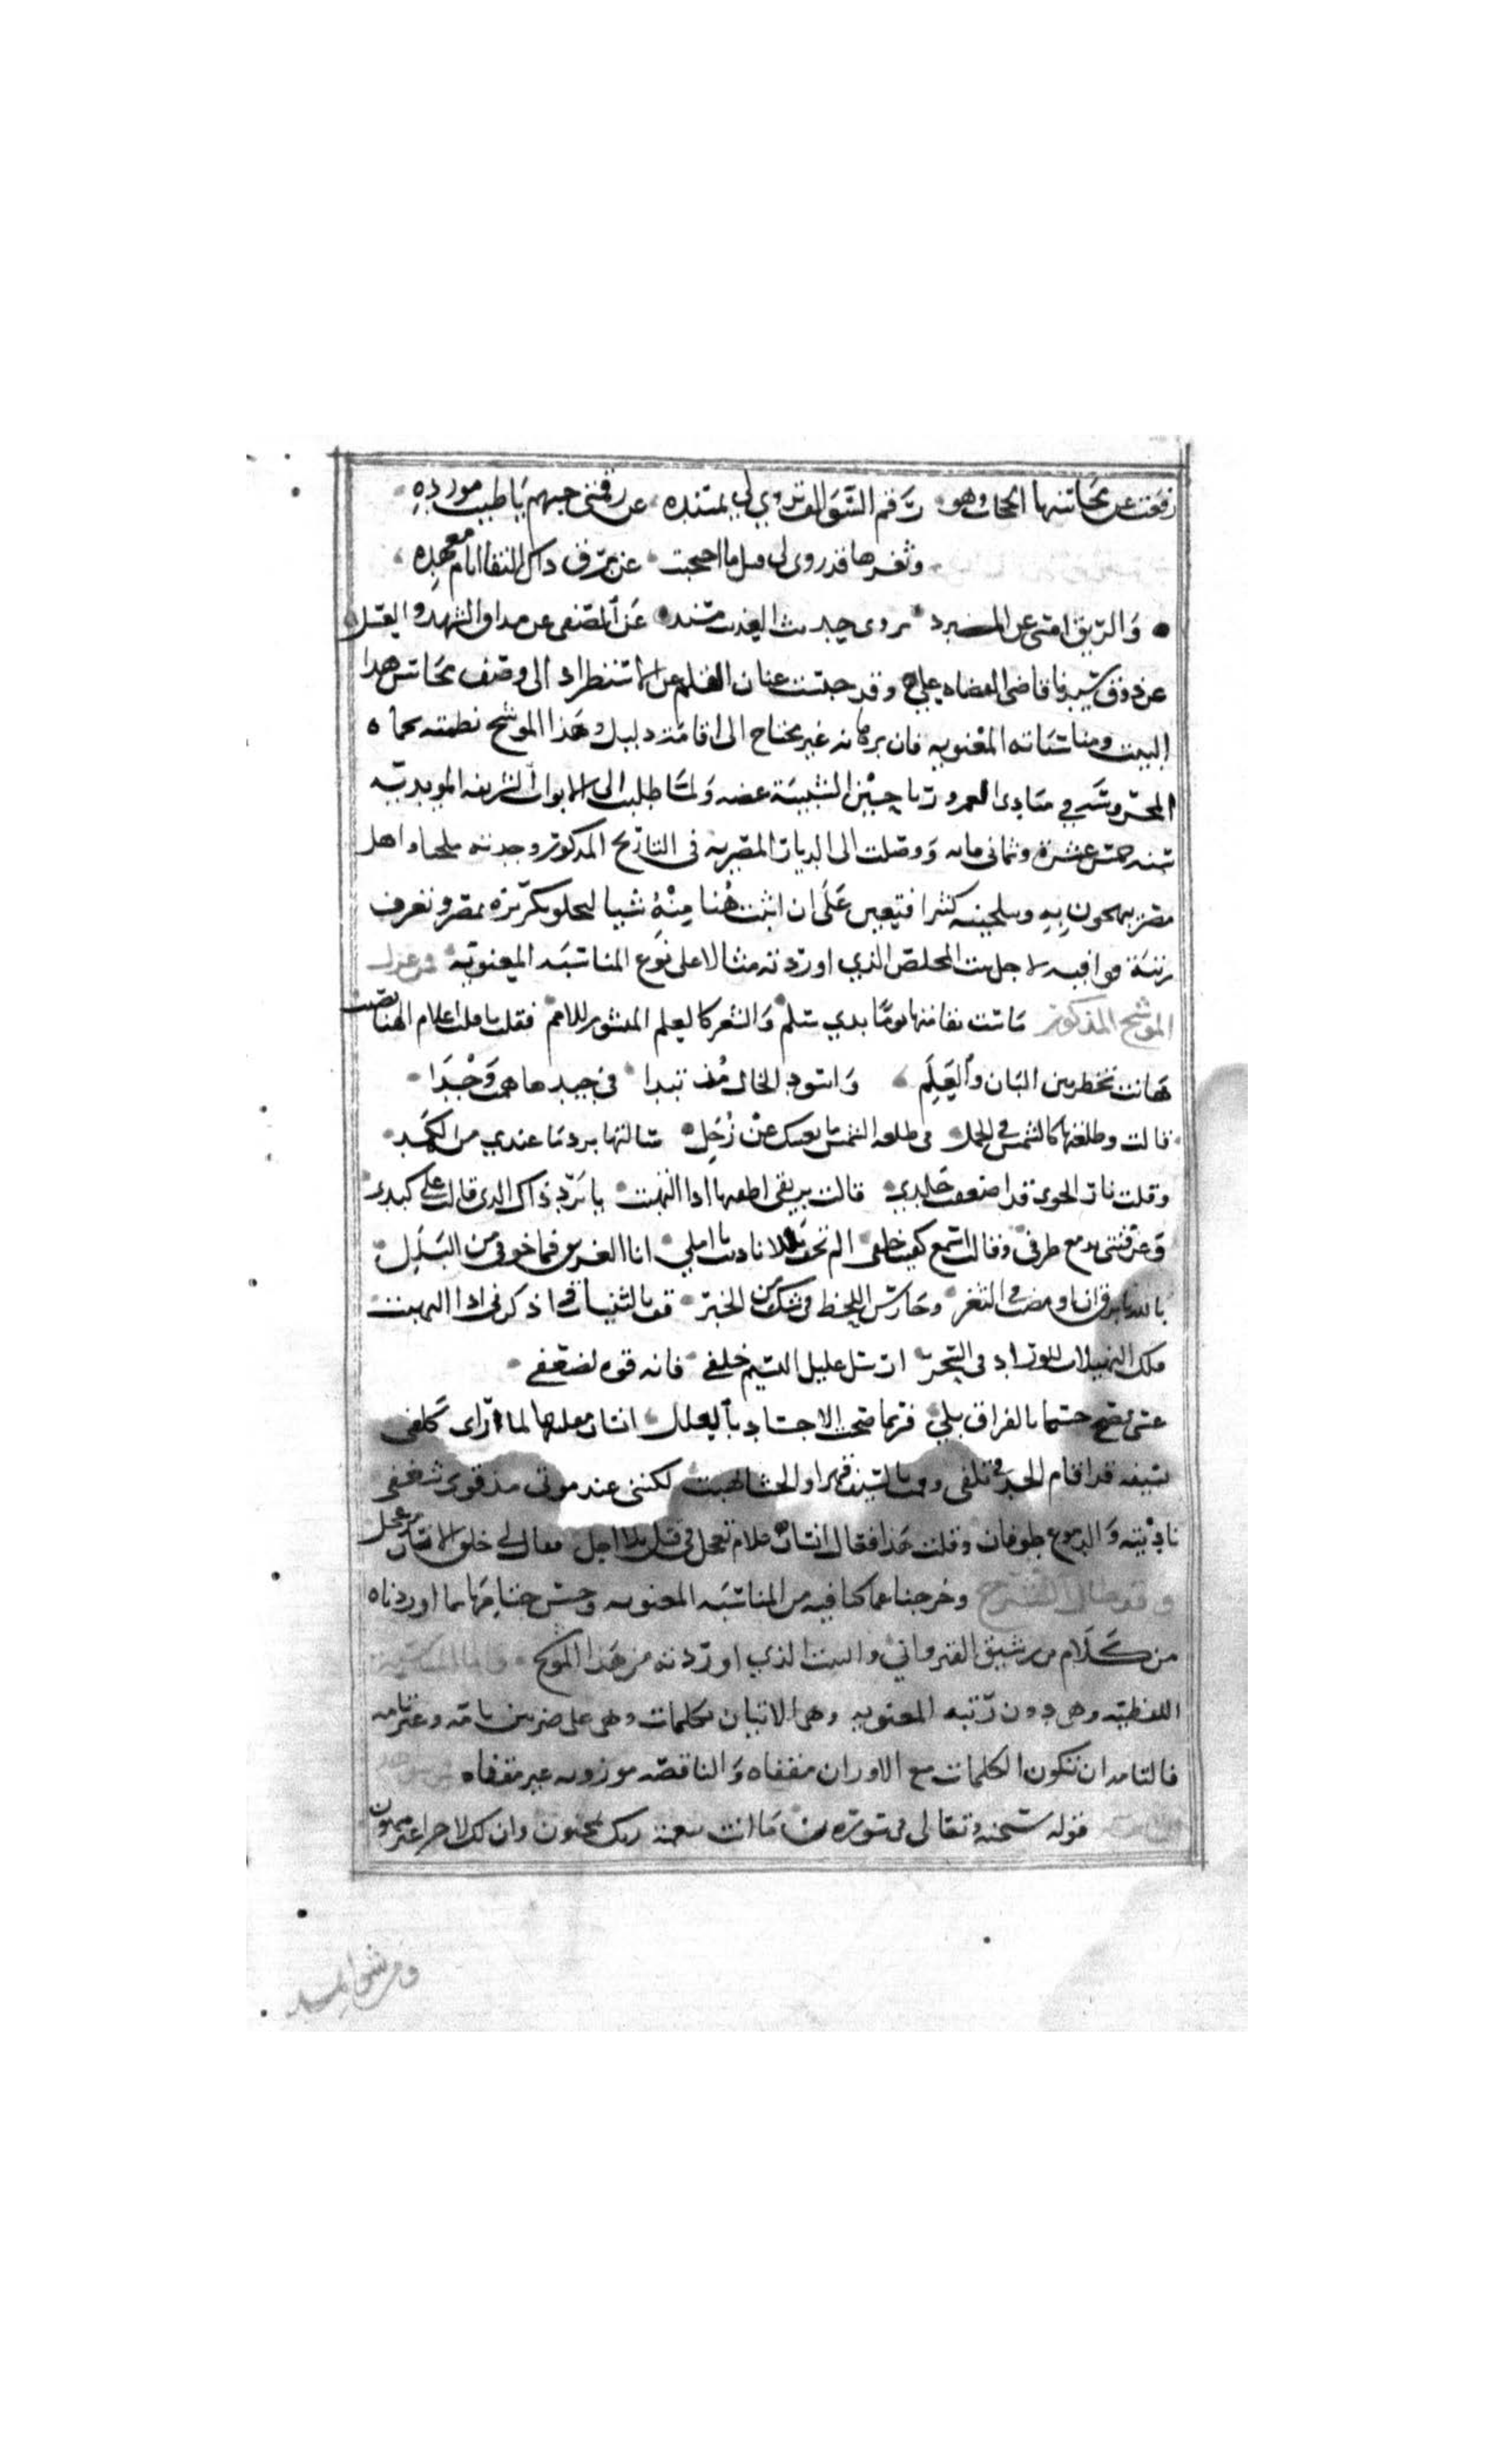 رفعت عن محاسنها الحجاب وهو رقم السوالف يروي لي بمسنده عن رقمتي حبهم يا طيب مورده
وثغرها قد روى لي قبل ما احتجبت عن برق ذاك النقا ايام معهده
والريق امسى عن المبرد يروي حديث العذيب مسند عن الصفى عن مذاق الشهد والعسل
عن ذوق سيدنا قاضي القضاه علي وقد حبست عنان القلم عن الاستطراد الى وصف محاسن هذا
البيت ومناسباته المعنويه فان برهانه غير محتاج الى اقامة دليل وهذا الموشح نظمته بحماه
المحروسه في مبادي العمر ورياحين الشبيبة غضه ولما طلبت الى الابواب الشريفه المويديه
سنه خمس عشرة وثماني مايه ووصلت الى الديار المصريه في التاريخ المذكور وجدته ملحنا واهل
مصر يلهجون به وبتلحينه كثيرا فتعين علي ان اثبت هنا منه شيا ليحلو مكرره بمصر وتعرف
رتبة قوافيه لاجل بيت المخلص الذي اوردته مثالا على نوع المناسبه المعنويه فمن غزل
الموشح المذكور ماست بقامتها يوما بذي سلم والشعر كالعلم المنشور للامم فقلت يا قلب اعلام الهنا نصبت
هانت تخطر بين البان والعلم واسود الخال مذ تبدا في جيدها همت وجدا
قالت وطلعتها كالشمس في الحمل في طلعة الشمس ما يغنيك عن زحل سالتها برد ما عندي من الكمد
وقلت نار الجوى قد اضعفت جلدي قالت بريقي اطفيها اذا التهبت يا برد ذاك الذي قالت على كبدي
وغرقتني بدمع طرفي وقالت اسمع كيف خلفي الم تخف بللا ناديت يا املي انا الغريق فما خوفي من البلل
بالله يا برق ان اومضت في الثغر وحارس اللحظ في شك من الخبر قف بالثنيات واذكرني اذا التهبت
تلك النهيلات للوراد في السحر ارسل عليل النسيم خلفي فانه قوه لضعفي
عسى تصح جسما بالفراق بلي فربما صحت الاجساد بالعلل انسان مقلتها لما راى كلفي
بسيفه قد اقام الحد في تلفي ومت بالسيف قهرا والحشا لهبت لكنني عند موتي مذ قوى شغفي
ناديته والدموع طوفان وقلت هذا فقال انسان علام تعجل في قتل بلا اجل فقال لي خلق الانسان من عجل
وقد طال الشرح وخرجنا عما كنا فيه من المناسبه المعنويه وحسن ختامها ما اوردناه
من كلام بن رشيق القيرواني والبيت الذي اوردته من هذا الموشح واما المناسبة
اللفظيه وهي دون رتبة المعنويه وهي الاتيان بكلمات وهي على ضربين تامه وغير تامه
فالتامه ان تكون الكلمات مع الاوزان مقفاه والناقصه موزونه غير مقفاه
قوله سبحنه وتعالى في سورة ن ما انت بنعمة ربك بمجنون وان لك لاجرا غير ممنون
ومن شواهد